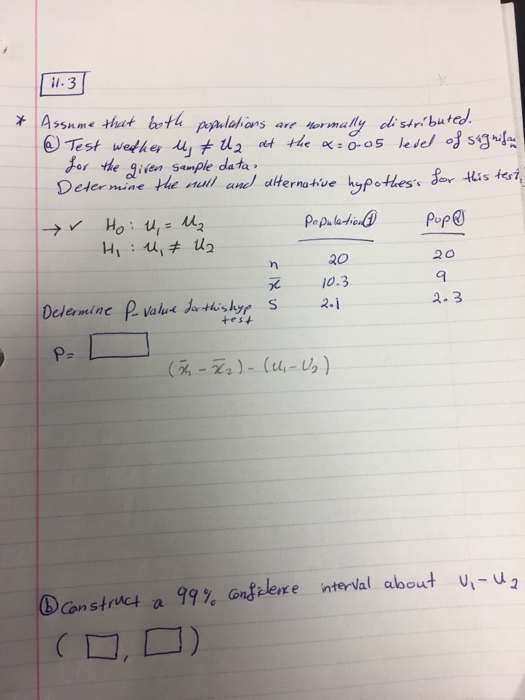 11.3
* Assume that both populations are normally distributed.
ⓐ Test wether u₁ ≠ u₂ at the α = 0.05 level of
for the given sample data.
Determine the null and alternative hypothesis for this test.
→ ✓ H₀ : u₁ = u₂
H₁ : u₁ ≠ u₂
Population① Pop②
n 20 20
x̄ 10.3 9
s 2.1 2.3
Determine P-value for this hyp
test
P =
(x̄₁ - x̄₂) - (u₁ - u₂)
ⓑ Construct a 99% confidence interval about u₁ - u₂
( , )